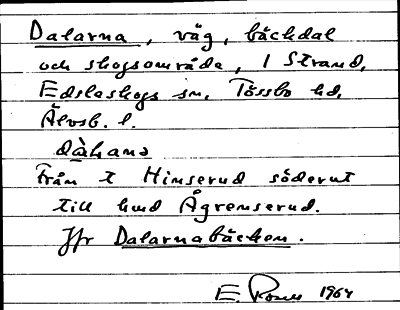 Dalarna, väg, bäckdal
och skogsområde, 1 Strand,
Edsleskogs sn, Tössbo hd,
Älvsb. l.
dàhana
Från t Himserud söderut
till hmd Ågrenserud.
Jfr Dalarnabäcken.
E. 1964